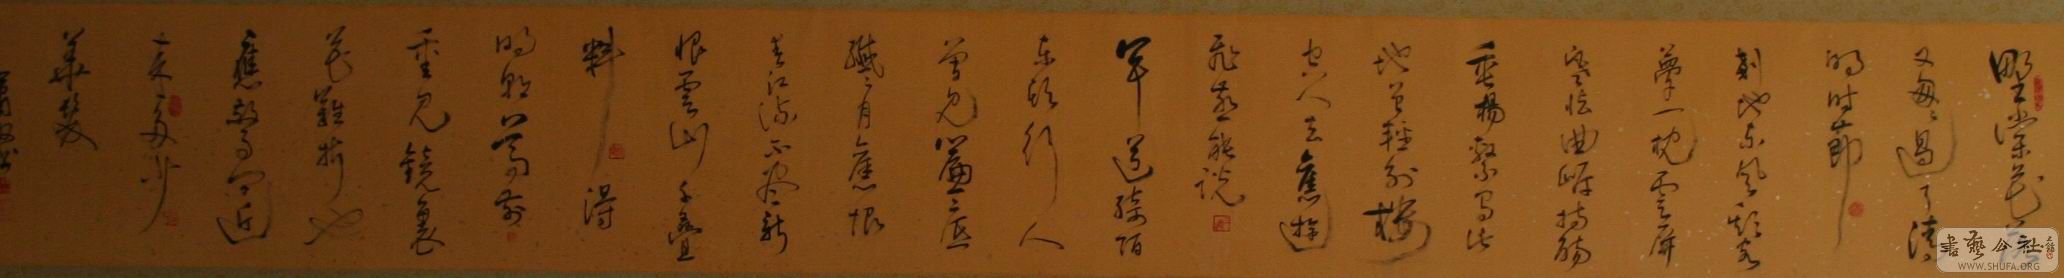 野棠花落
又匆匆過了清
明時節
剗地東風欺客
夢一枕雲屏
寒怯曲岸持觴
垂楊繫馬此
地曾輕別樓
空人去舊遊
飛燕能說
聞道綺陌
東頭行人
曾見簾底
纖纖月舊恨
春江流不盡新
恨雲山千疊
料得
明朝尊前
重見鏡裏
花難折也
應驚問近
來多少
華髮
書藝公社
WWW.SHUFA.ORG